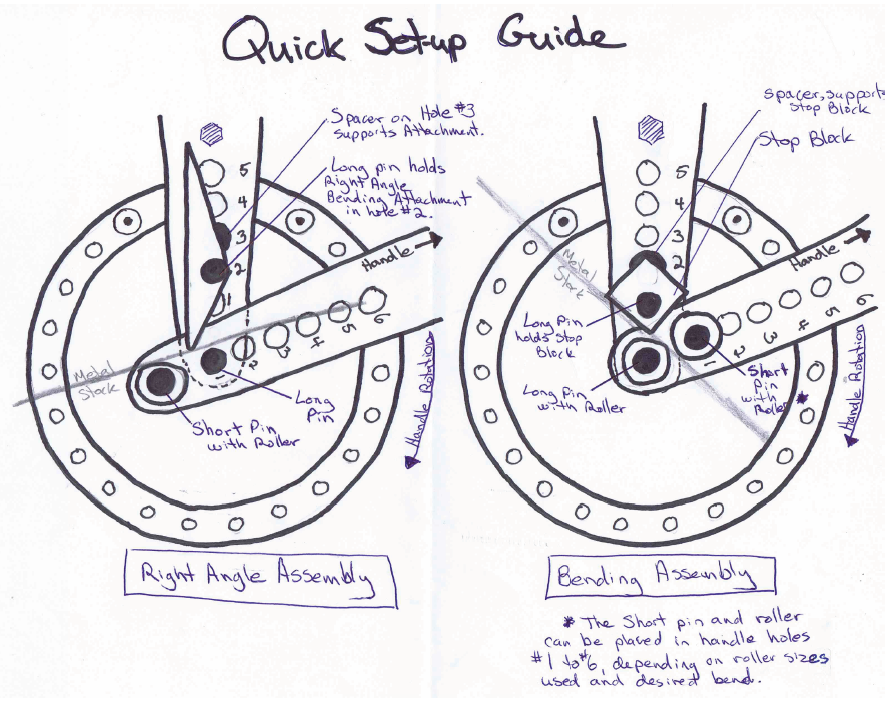 Quick Set-up Guide
Spacer on Hole #3
supports Attachment.
Long pin holds
Right Angle
Bending Attachment
in hole #2.
5
4
3
2
1
Handle
2
3
4
5
6
Metal
Stock
Short Pin
with Roller
Long
Pin
Handle Rotation
Right Angle Assembly
Spacer, supports
Stop Block
Stop Block
5
4
3
2
Handle
Metal
Stock
1
2
3
4
5
6
Long Pin
holds Stop
Block
Long Pin
with Roller
Short
Pin
with
Roller *
Handle Rotation
Bending Assembly
* The Short pin and roller
can be placed in handle holes
#1 to #6, depending on roller sizes
used and desired bend.